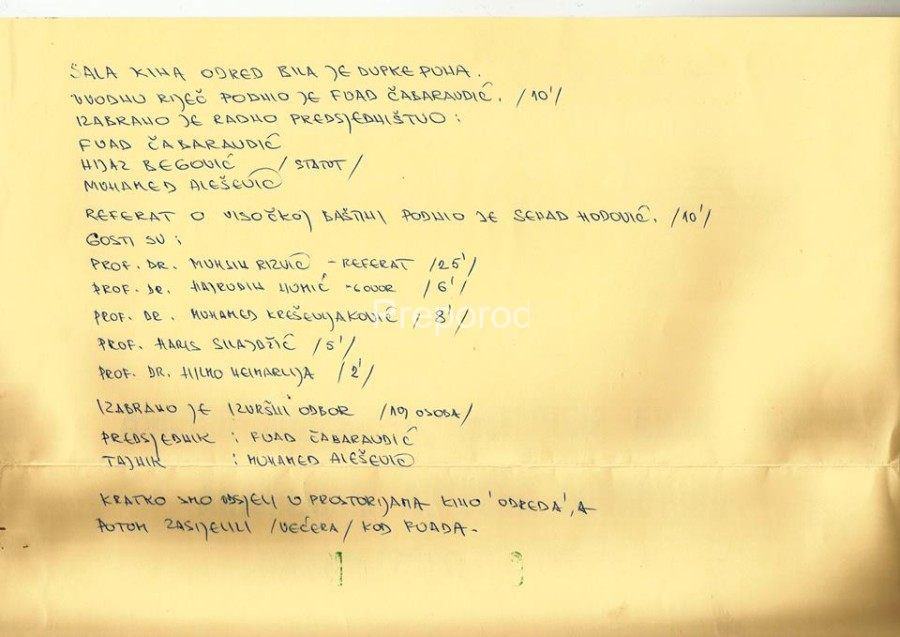 SALA KINA ODRED BILA JE DUPKE PUNA.
UVODNU RIJEČ PODNIO JE FUAD ČABARAVDIĆ. /10'/
IZABRANO JE RADNO PREDSJEDNIŠTVO:
FUAD ČABARAVDIĆ
NIJAZ BEGOVIĆ /STATUT/
MUHAMED ALEŠEVIĆ
REFERAT O VISOČKOJ BAŠTINI PODNIO JE SENAD HODOVIĆ. /10'/
GOSTI SU:
PROF. DR. MUHSIN RIZVIĆ - REFERAT /25'/
PROF. DR. HAJRUDIN NUMIĆ - GOVOR /6'/
PROF. DR. MUHAMED KREŠEVLJAKOVIĆ /8'/
PROF. HARIS SILAJDŽIĆ /5'/
PROF. DR. HILMO NEIMARLIJA /2'/
IZABRANO JE IZVRŠNI ODBOR /19 OSOBA/
PREDSJEDNIK : FUAD ČABARAVDIĆ
TAJNIK : MUHAMED ALEŠEVIĆ
KRATKO SMO SJELI U PROSTORIJAMA KINO 'ODREDA', A
POTOM ZASIJELILI /VEČERA/ KOD FUADA.
Preporod